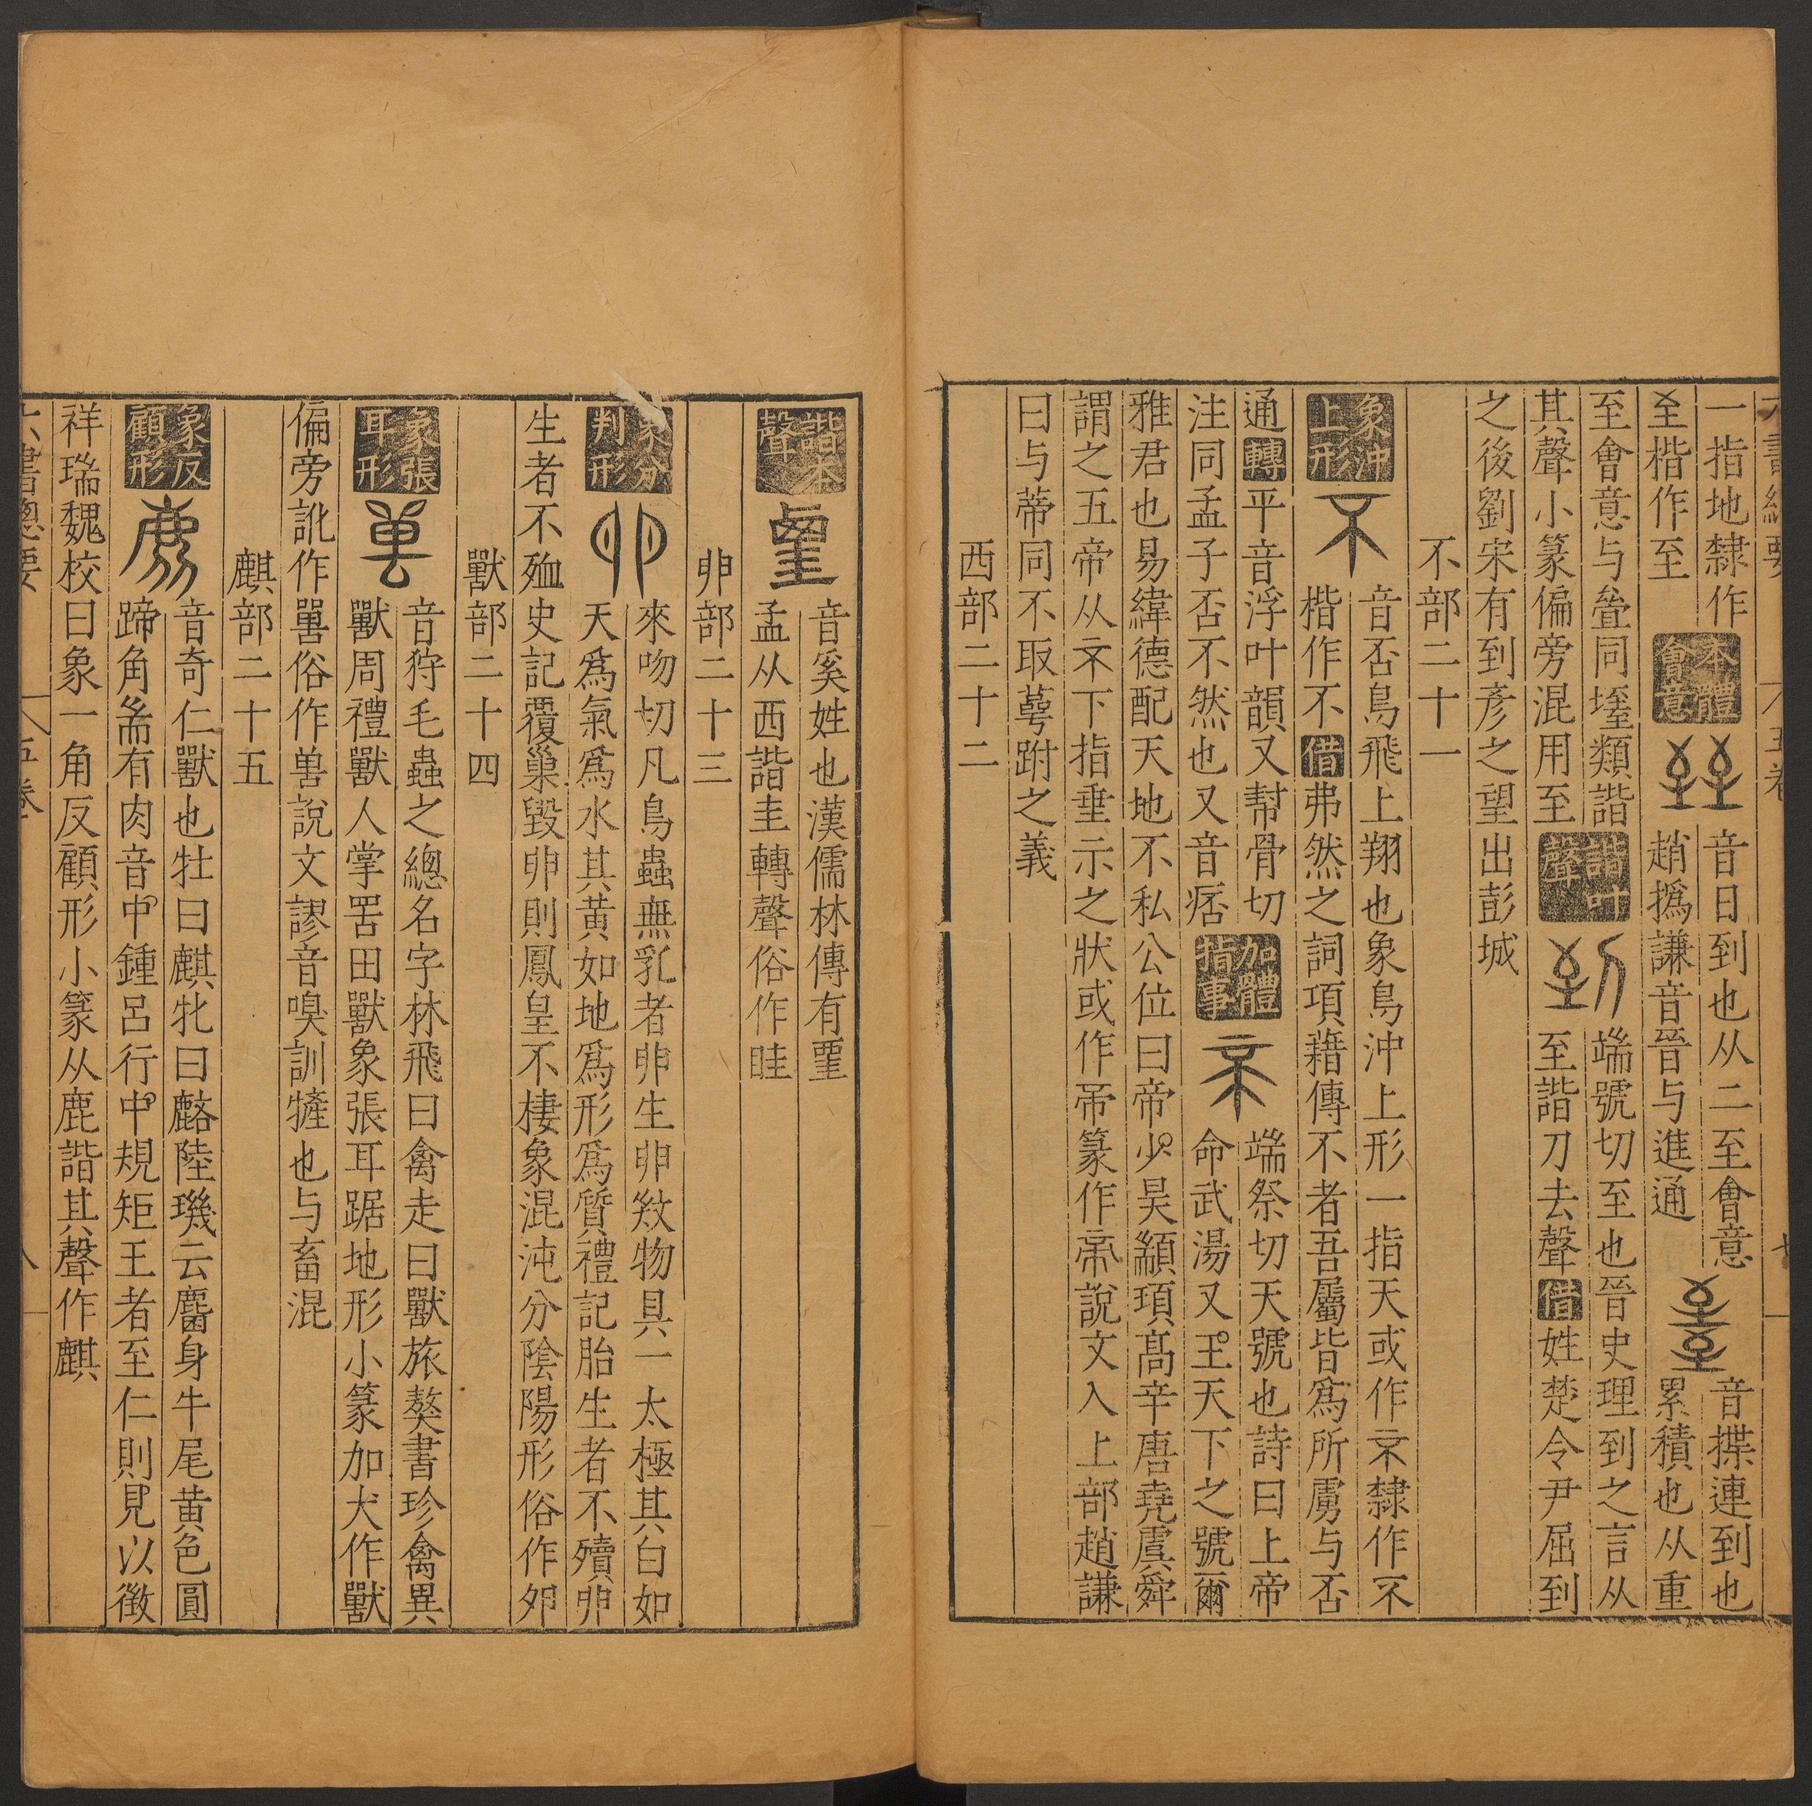 六書總要 五卷 七
一指地隸作 音日到也从二至會意 音揲連到也
至楷作至 本體會意 趙撝謙音晉与進通 累積也从重
至會意与疊同垤類諧 諧 聲 端號切至也晉史理到之言从
其聲小篆偏旁混用至 至諧刀去聲借姓楚令尹屈到
之後劉宋有到彥之望出彭城
不部二十一
象沖上形 不 音否鳥飛上翔也象鳥沖上形一指天或作 隸作不
楷作不借弗然之詞項藉傳不者吾屬皆爲所虜与否
通轉平音浮叶韻又幫骨切 端祭切天號也詩曰上帝
注同孟子否不然也又音痞 加體指事 命武湯又王天下之號爾
雅君也易緯德配天地不私公位曰帝少昊顓頊高辛唐堯虞舜
謂之五帝从不下指垂示之狀或作帝篆作帝說文入上部趙謙
曰与蒂同不取萼跗之義
西部二十二
諧本聲 音奚姓也漢儒林傳有
孟从西諧圭轉聲俗作眭
卵部二十三
象分判形 卵 來吻切凡鳥蟲無乳者卵生卵敚物具一太極其白如
天爲氣爲水其黄如地爲形爲質禮記胎生者不殰卵
生者不殈史記覆巢毀卵則鳳皇不棲象混沌分陰陽形俗作夘
獸部二十四
象張耳形 音狩毛蟲之總名字林飛曰禽走曰獸旅獒書珍禽異
獸周禮獸人掌罟田獸象張耳踞地形小篆加犬作獸
偏旁訛作嘼俗作兽說文謬音嗅訓㹌也与畜混
麒部二十五
象反顧形 音奇仁獸也牡曰麒牝曰𪊴陸璣云麕身牛尾黄色圓
蹄角耑有肉音中鍾呂行中規矩王者至仁則見以徵
祥瑞魏校曰象一角反顧形小篆从鹿諧其聲作麒
六書總要 五卷 八